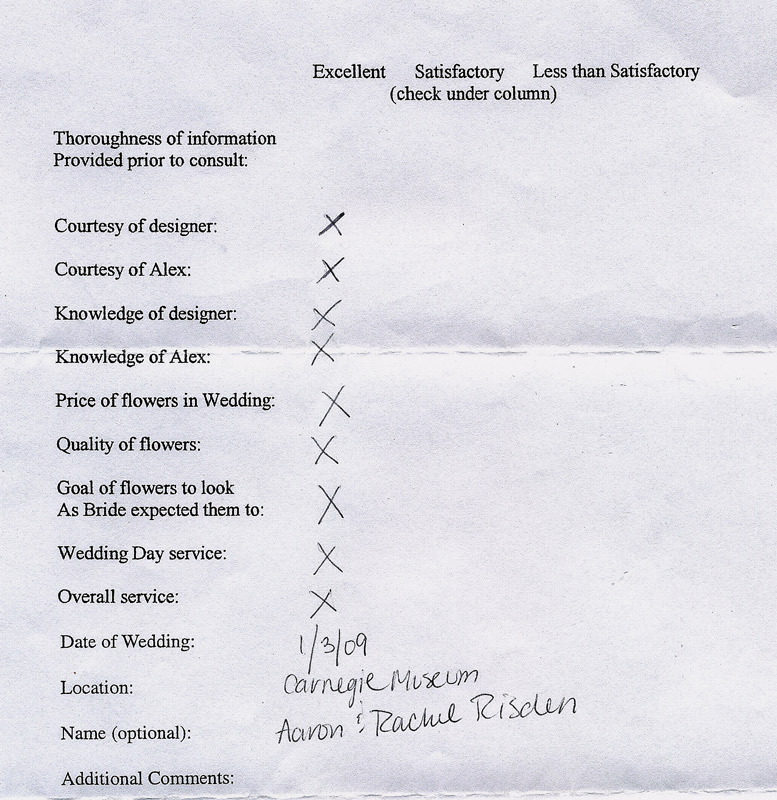 Excellent Satisfactory Less than Satisfactory
(check under column)
Thoroughness of information
Provided prior to consult:
Courtesy of designer: X
Courtesy of Alex: X
Knowledge of designer: X
Knowledge of Alex: X
Price of flowers in Wedding: X
Quality of flowers: X
Goal of flowers to look
As Bride expected them to: X
Wedding Day service: X
Overall service: X
Date of Wedding: 1/3/09
Location: Carnegie Museum
Name (optional): Aaron & Rachel Risden
Additional Comments: